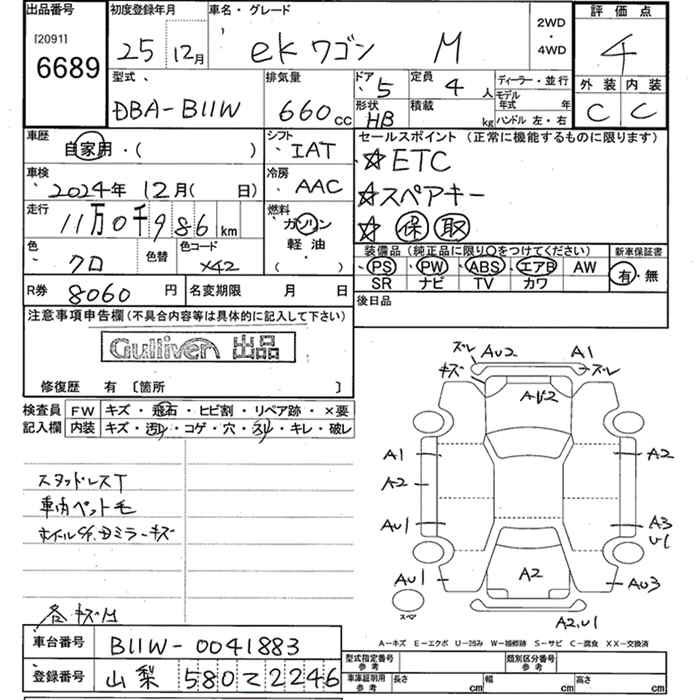 出品番号
[2091]
6689
初度登録年月
25年12月
車名・グレード
ekワゴン M
2WD
・
4WD
評価点
4
外装 内装
C C
型式
DBA-B11W
排気量
660cc
ドア
5
定員
4人
形状
HB
積載
kg
ディーラー・並行
モデル年式 年
ハンドル 左・右
車歴
自家用・( )
シフト
IAT
セールスポイント (正常に機能するものに限ります)
☆ETC
☆スペアキー
☆ 保 取
車検
2024年12月( 日)
冷房
AAC
走行
11万0千986km
燃料
ガソリン
軽油
( )
色
クロ
色替
色コード
X42
装備品 (純正品に限り〇をつけてください)
PS PW ABS エアB AW
SR ナビ TV カワ
新車保証書
有・無
R券 8060円
名変期限 月 日
後日品
注意事項申告欄(不具合内容等は具体的に記入して下さい)
Gulliver 出品
修復歴 有 〔箇所 〕
検査員記入欄
FW キズ・飛石・ヒビ割・リペア跡・×要
内装 キズ・汚れ・コゲ・穴・スリ・キレ・破レ
スタッドレスT
車内ペット毛
各キズ凹
車台番号 B11W-0041883
登録番号 山梨 580 て 2246
ズレ
キズ
AU2
A1
ズレ
AU2
A1
A2
A2
AU1
A3
U1
AU1
A2
AU3
スペア
A2,U1
A-キズ E-エクボ U-凹み W-補修跡 S-サビ C-腐食 XX-交換済
型式指定番号
参考
類別区分番号
参考
車庫証明用
参考
長さ cm
幅 cm
高さ cm